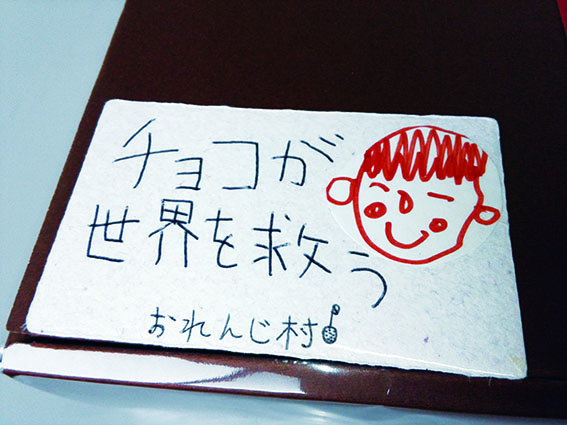 チョコが
世界を救う
おれんじ村